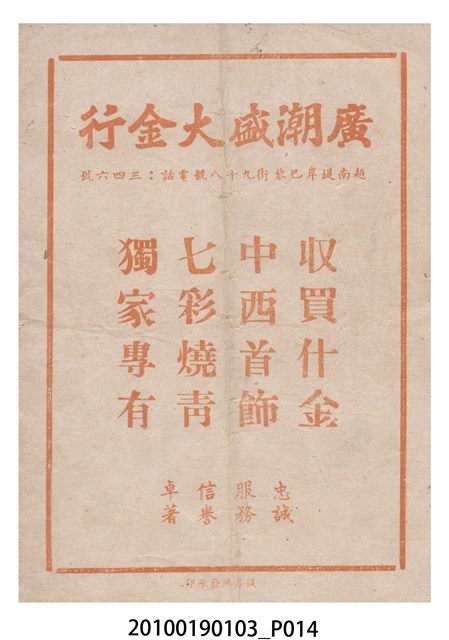 廣潮盛大金行
越南堤岸巴黎街九十八號電話：三四六號
收買什金
中西首飾
七彩燒青
獨家專有
忠誠
服務
信譽
卓著
20100190103_P014